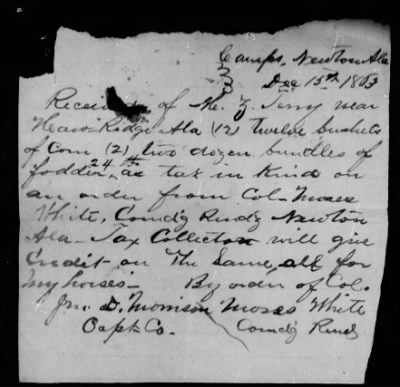 Camp, Newton Ala
Dec 15th 1863
Received of Mr. Z. Terry near
Haw Ridge Ala (12) twelve bushels
of Corn (2) two dozen bundles of
fodder, 24 as tax in Kind on
an order from Col. Moses
White, Comdg Rendz Newton
Ala - Tax Collector will give
Credit on the same, all for
my horses - By order of Col.
Jno. D. Morrison Moses White
Capt. Co. Comdg Rendz